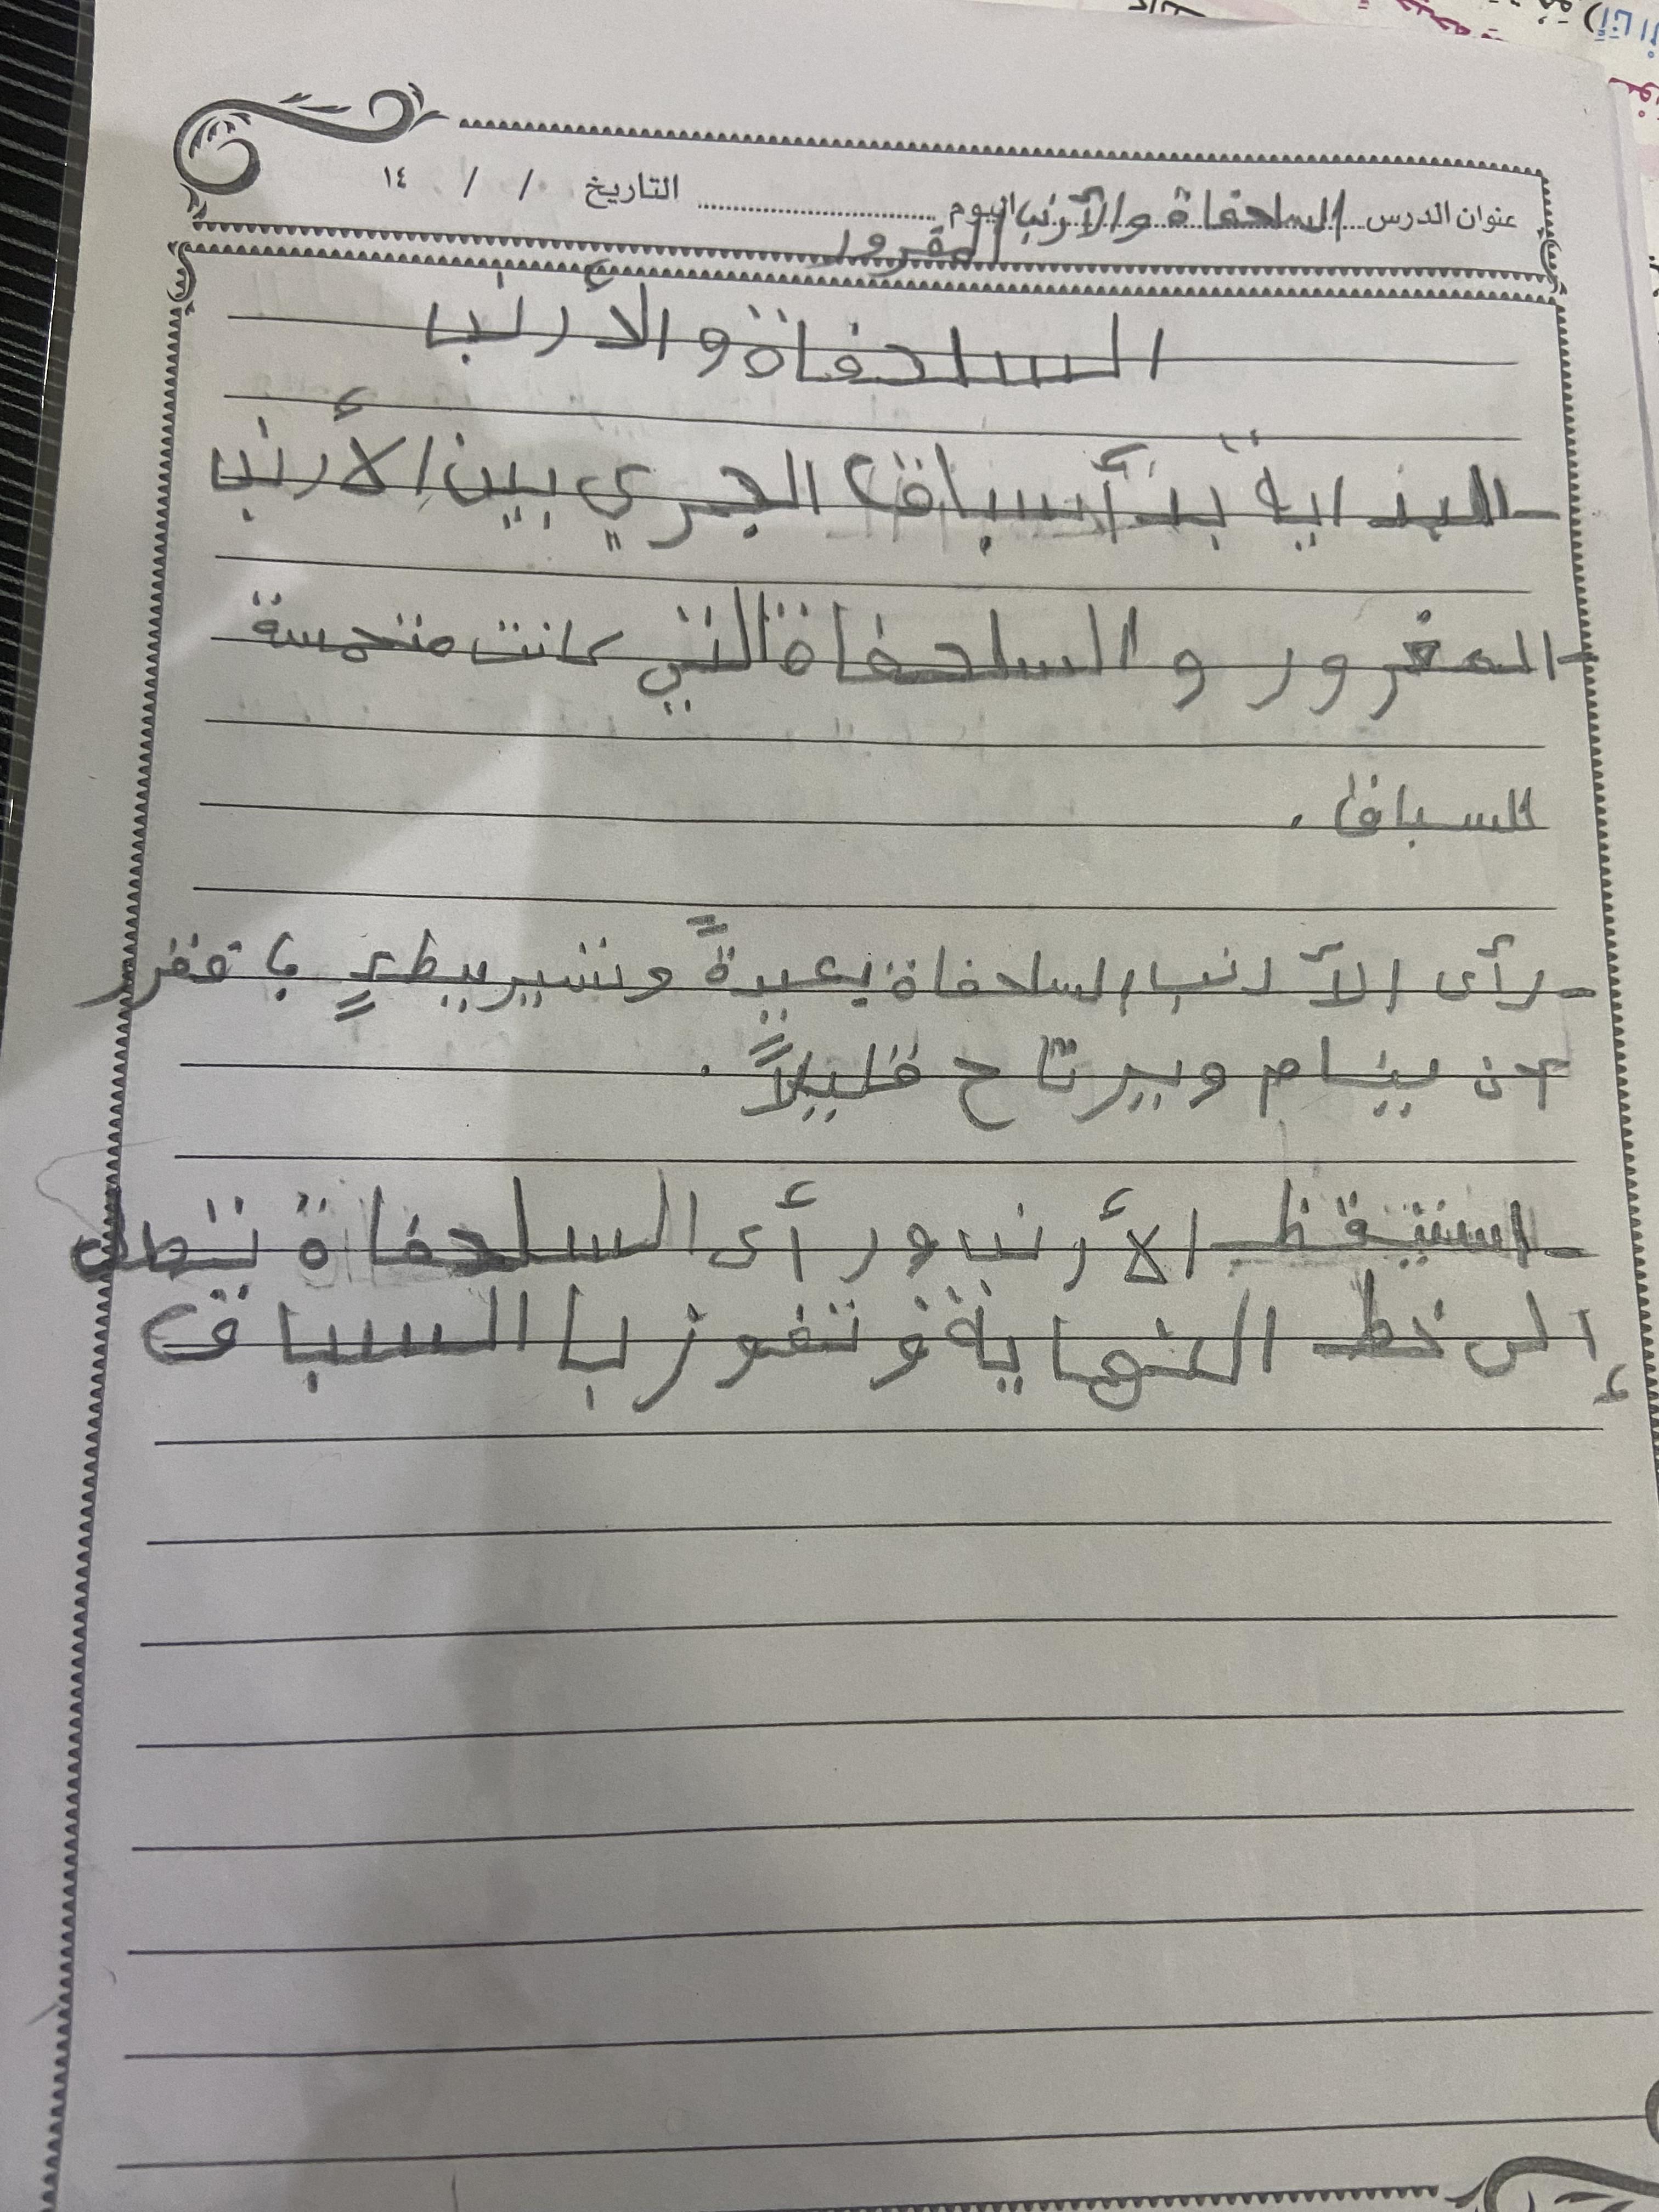 عنوان الدرس السلحفاة والأرنب اليوم التاريخ / / ١٤
المقرور
السلحفاة والأرنب
- البداية بدأ سباق الجري بين الأرنب
- المغرور والسلحفاة التي كانت متحمسة
للسباق .
- رأى الأرنب السلحفاة بعيدةً وتسير ببطئٍ فقرر
أن ينام ويرتاح قليلاً .
- استيقظ الأرنب ورأى السلحفاة تصل
إلى خط النهاية وتفوز باالسباق